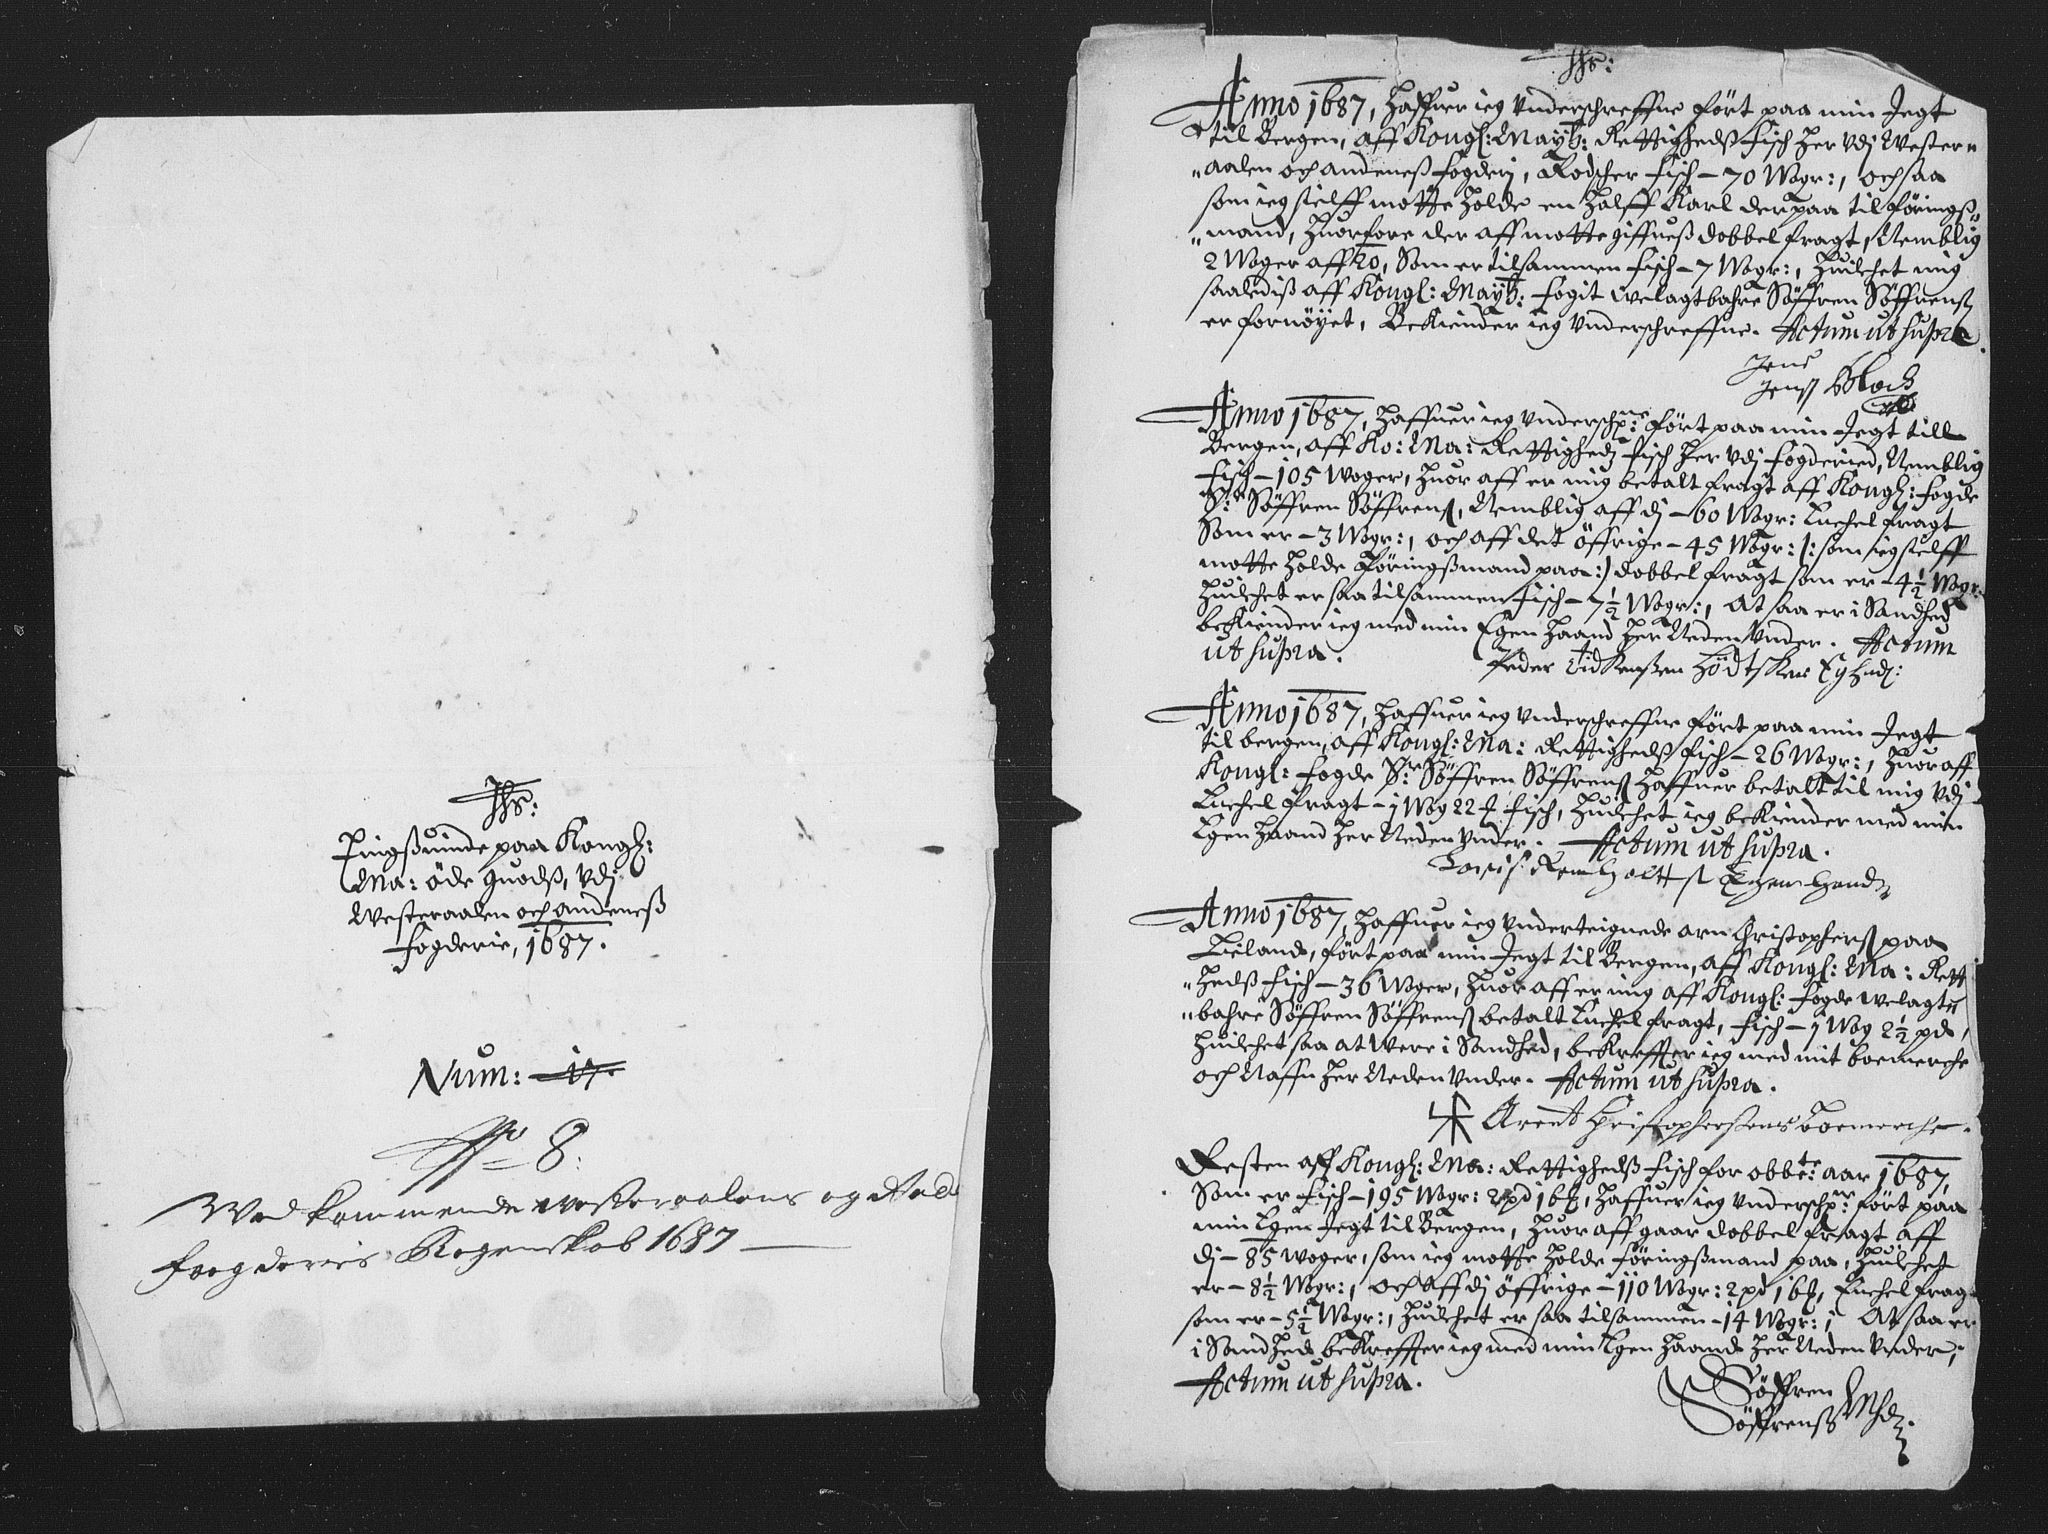 Jhs:
Tingßuinde paa Kongl:
Ma: øde guodß, vdj
Westeraalen och andeneß
fogderie, 1687.
Num: 17.
No 8:
Wed kommende westeraalens og And
foegderies Regenskab 1687
Jhs:
Anno 1687, Haffuer ieg Underschreffne ført paa min Jegt
til Bergen, aff Kongl: Mayts: Rettighedß fisch her vdj Wester¬
aalen och andeneß fogderj, Rodscher fisch – 70 Wogr:, och saa
som ieg sielff motte Holde en Halff Karl der paa til føringß¬
mand, Huorfore der aff motte giffueß dobbel fragt, Nemblig
2 Woger aff 20, Som er tilsammen fisch – 7 Wogr:, Huilchet mig
saalediß aff Kongl: Mayts: fogit welagtbahre Søffren Søffrenß
er fornøyet, Bekiender ieg Underschreffne. Actum ut supra.
Jens
Jenß Block
Anno 1687, Haffuer ieg Underschrne: ført paa min Jegt till
Bergen, aff Ko: Ma: Rettighedß fisch her vdj fogderied, Nemblig
fisch – 105 Woger, Huor aff er mig betalt fragt aff Kongl: fogde
Sr: Søffren Søffrenß, Nemblig aff dj – 60 Wogr: Enchel fragt
Som er – 3 Wogr:, och aff det øffrige – 45 Wogr: /: som ieg sielff
motte Holde føringßmand paa :/ dobbel fragt som er – 4½ Wogr:
Huilchet er saa tilsammen fisch – 7½ Wogr:, At saa er i Sandhed
bekiender ieg med min Egen Haand her Neden Under. Actum
ut supra.
Peder Vidkenßen Egh hd:
Anno 1687, Haffuer ieg Underschreffne ført paa min Jegt
til bergen, aff Kongl: Ma: Rettighedß fisch – 26 Wogr:, Huor aff
Kongl: fogde Sr: Søffren Søffrenß Haffuer betalt til mig vdj
Enchel fragt – 1 Wog 22 fisch, Huilchet ieg bekiender med min
Egen Haand her Neden Under. Actum ut supra.
Reinholtß Egen Hand
Anno 1687, Haffuer ieg Underteignede arn Christopherß paa
Lielands, ført paa min Jegt til Bergen, aff Kongl: Ma: Rettig
hedß fisch – 36 Woger, Huor aff er mig aff Kongl: fogde welagt¬
bahre Søffren Søffrenß betalt Enchel fragt, fisch – 1 Wog 2½ pd,
Huilchet saa at Were i Sandhed, bekreffter ieg med mit boemerche
och Naffn her Neden Under. Actum ut supra.
Arent Christophersens boemerche.
Resten aff Kongl: Ma: Rettighedß fisch for obbete: aar 1687,
Som er fisch – 195 Wogr: 2 pd 16, Haffuer ieg Underschrne: ført paa
min Egen Jegt til Bergen, Huor aff gaar dobbel fragt, aff
dj – 85 woger, som ieg motte Holde føringßmand paa, Huilchet
er – 8½ Wogr:, och aff dj øffrige – 110 Wogr: 2 pd 16, Enchel fragt
som er – 5½ Wogr:, Huilchet er saa tilsammen – 14 Wogr:, At saa er
i Sandhed bekreffter ieg med min Egen Haand her Neden Under,
Actum ut supra.
Søffren
Søffrenß Mhd